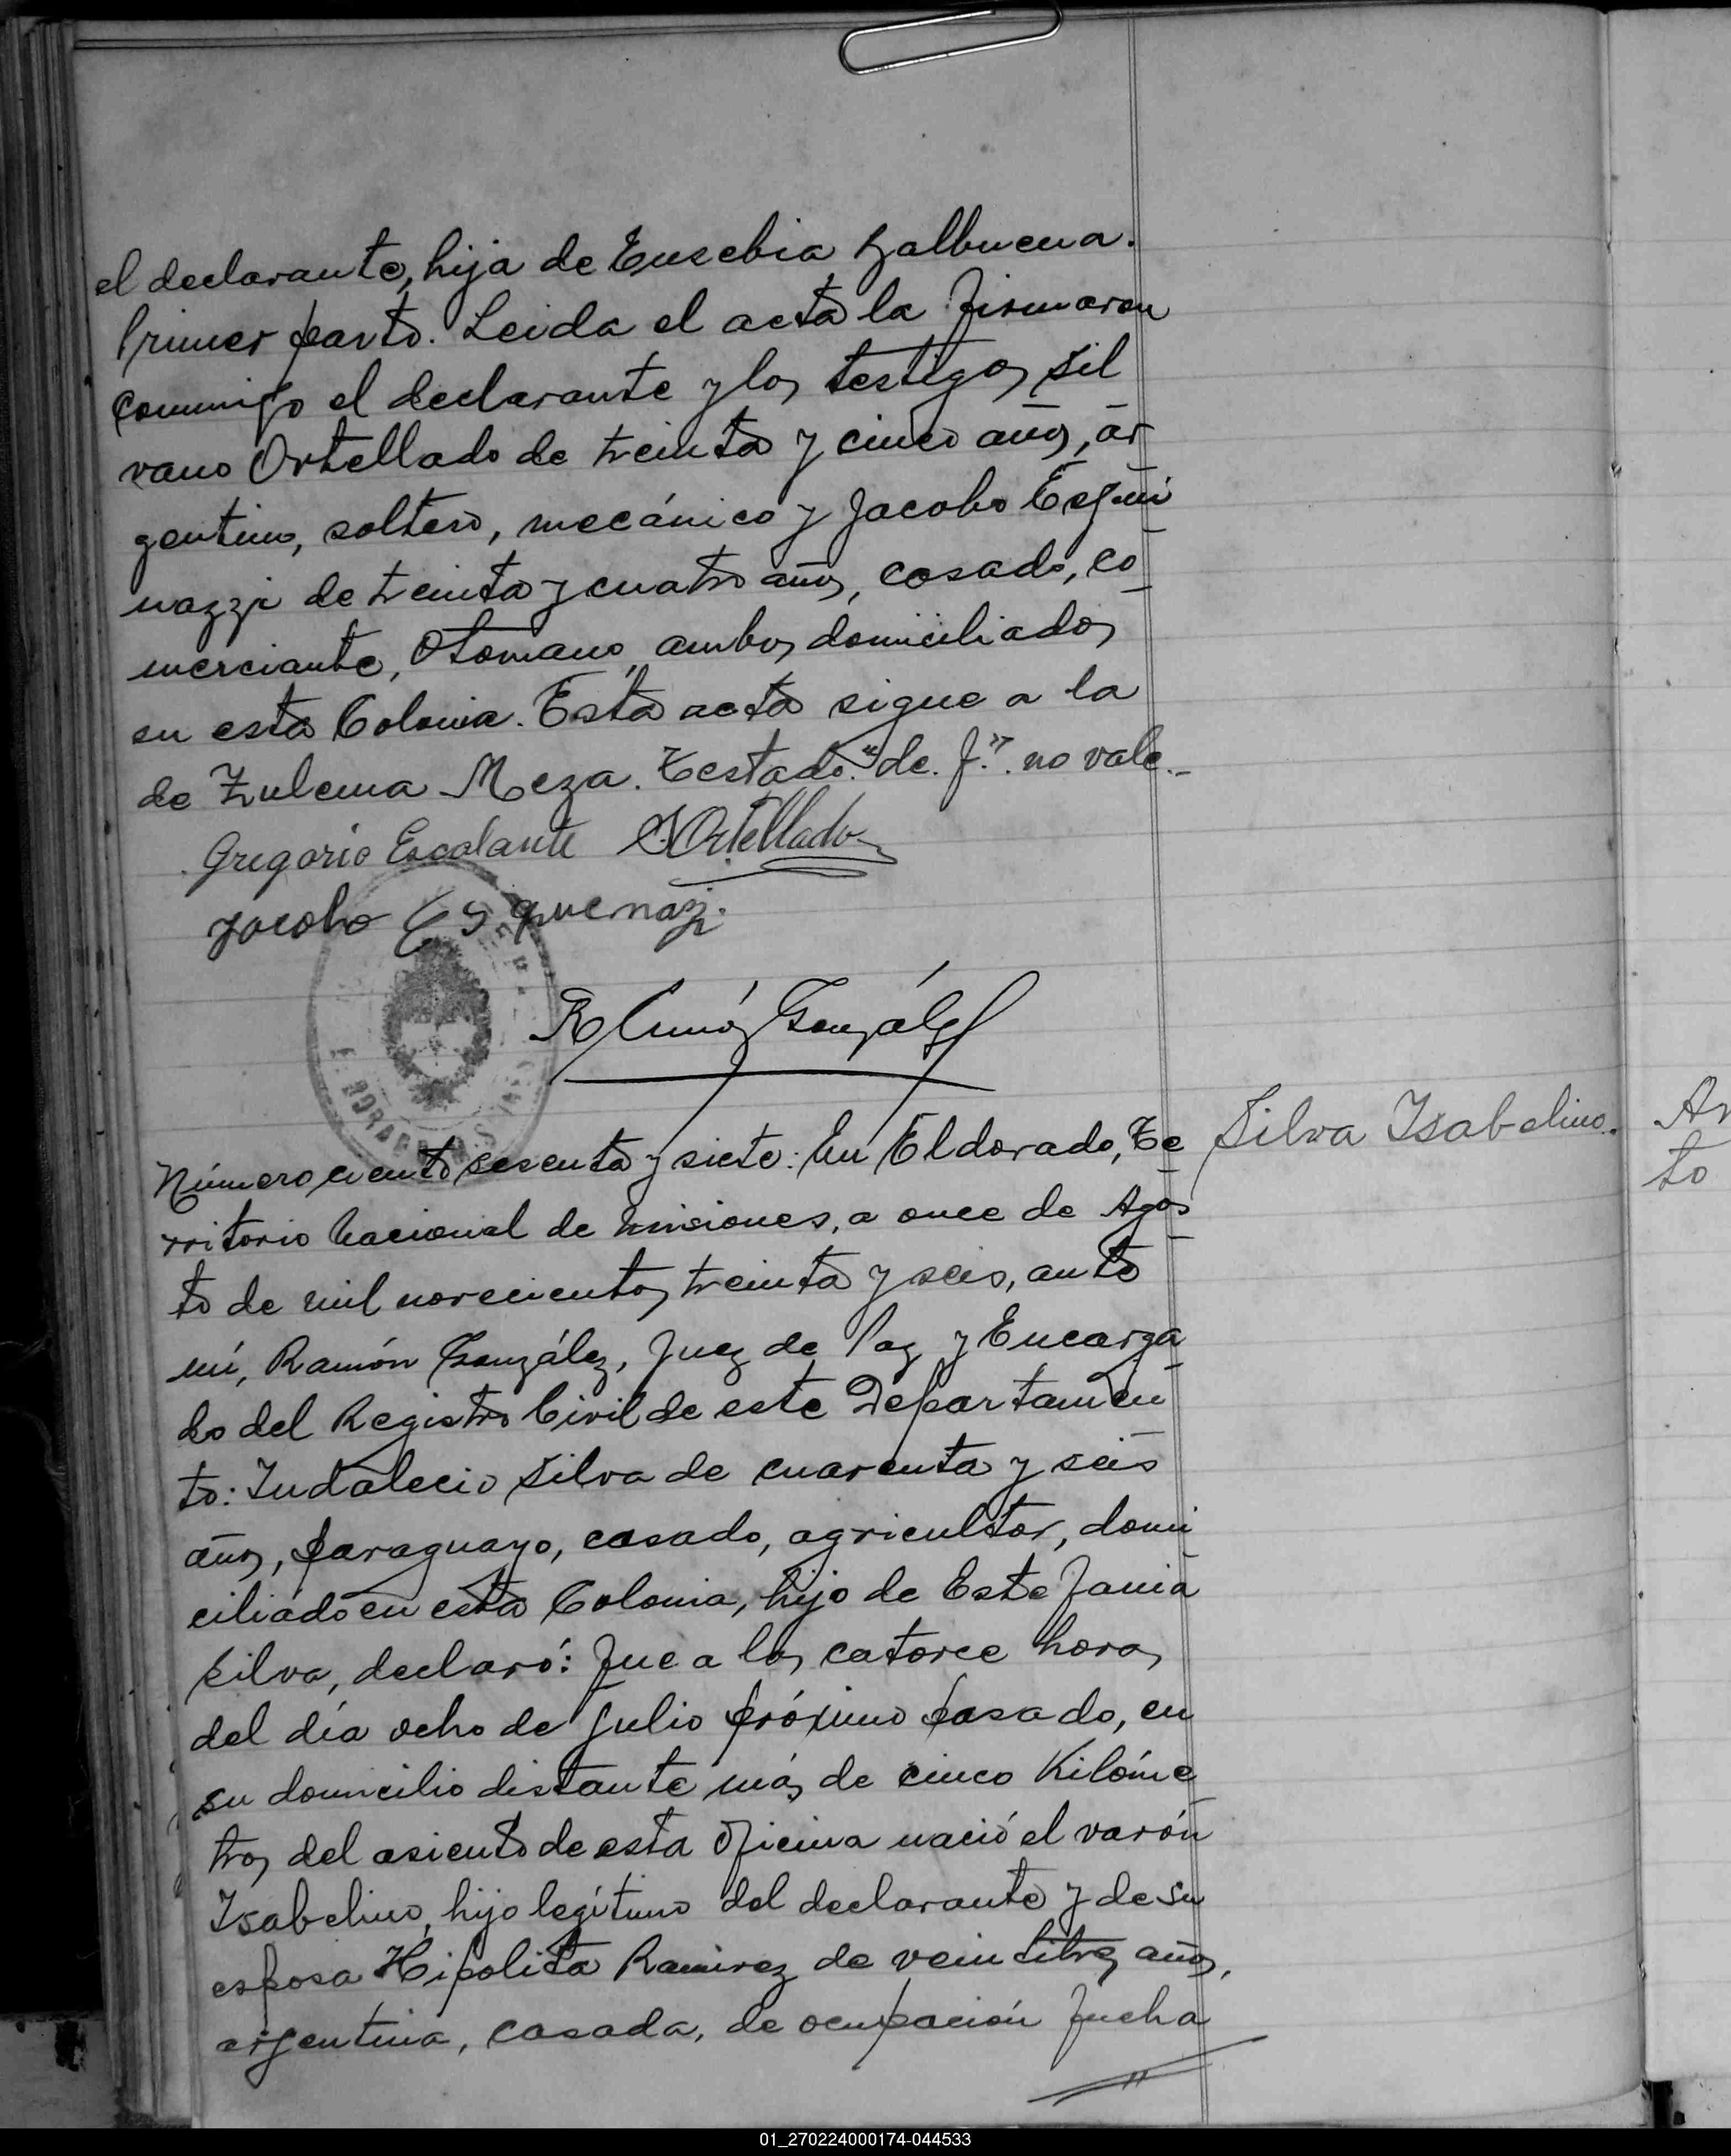 el declarante, hija de Eusebia Balbuena.
Primer parto. Leida el acta la firmaron
conmigo el declarante y los testigos Sil
vano Ortellado de treinta y cinco años, ar
gentino, soltero, mecánico y Jacobo Esqui
nazzi de treinta y cuatro años, casado, co
merciante, Otomano, ambos domiciliados
en esta Colonia. Esta acta sigue a la
de Zulema Meza. Testado: "de. J". no vale.-
Gregorio Escalante S. Ortellado
Jacobo Esquenazi.
R Muñoz González
Silva Isabelino.
Número ciento sesenta y siete: En Eldorado, Te
rritorio Nacional de Misiones, a once de Agos
to de mil novecientos treinta y seis, ante
mí, Ramón González, Juez de Paz y Encarga
do del Registro Civil de este Departamen
to: Indalecio Silva de cuarenta y seis
años, paraguayo, casado, agricultor, domi
ciliado en esta Colonia, hijo de Estefania
Silva, declaró: Que a las catorce horas
del día ocho de Julio próximo pasado, en
su domicilio distante más de cinco Kilóme
tros del asiento de esta Oficina nació el varón
Isabelino, hijo legítimo del declarante y de su
esposa Hipolita Ramirez de veintitres años,
argentina, casada, de ocupación Queha
to
01_270224000174-044533